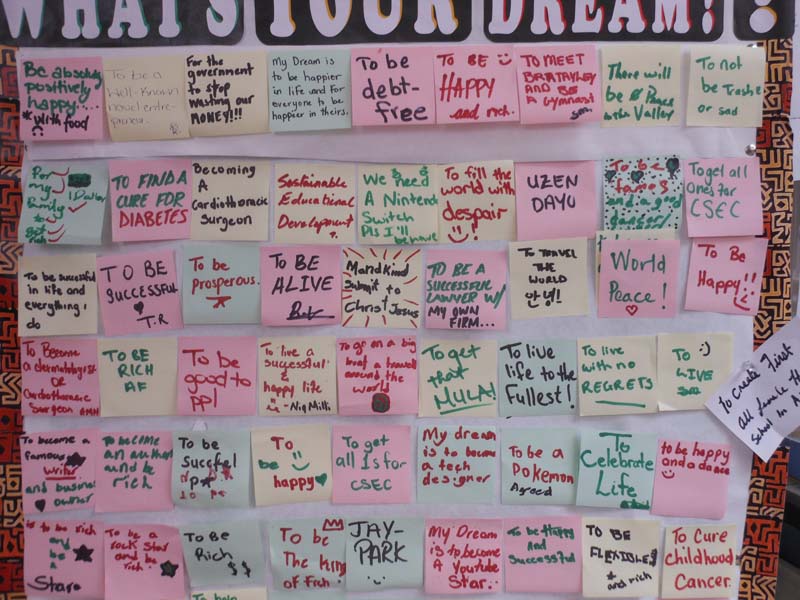 WHAT'S YOUR DREAM?!
Be absolutely
positively
happy...
*with food
To be a
Well-Known
novel entre-
preneur.
For the
government
to stop
wasting our
MONEY!!!
My Dream is
to be happier
in life and for
everyone to be
happier in theirs.
To be
debt-
free
To BE
HAPPY
and rich.
TO MEET
BRATAYLEY
AND BE
A Gymnast
There will
be Peace
in the Valley
To not
be Trashe
or sad
For
my
family
to
get
rich
TO FIND A
CURE FOR
DIABETES
Becoming
A
Cardiothoracic
Surgeon
Sustainable
Educational
Development.
We need
A Nintendo
Switch
Pls I'll behave
To fill the
world with
despair
UZEN
DAYO
To be
famos
and a good
dancer!
To get all
Ones for
CSEC
To be successful
in life and
everything i
do
TO BE
SUCCESSFUL
T.R
To be
prosperous.
To BE
ALIVE
Mandkind
Submit to
Christ Jesus
TO BE A
SUCCESSFUL
LAWYER W/
MY OWN
FIRM...
TO TRAVEL
THE
WORLD
안녕!!
World
Peace!
To Be
Happy!!
To Become
a dermatologist
OR
Cardiothorasic
Surgeon
TO BE
RICH
AF
To be
good to
PPl
To live a
successful
&
happy life
To go on a big
boat & travel
around the
world
To get
that
MULA!
To live
life to the
Fullest!
To live
with no
REGRETS
TO :)
LIVE
To Create First
all female
School in A
To become a
famous
writer
and business
owner
To become
an author
and be
rich
To be
Succfel
To
be
happy
To get
all 1s for
CSEC
My dream
is to become
a tech
designer
To be a
Pokemon
Agreed
To
Celebrate
Life
to be happy
and a dance
is to be rich
and
be
a
Star
To be a
rock star
and be
rich.
To Be
Rich
$$
To be
The King
of Fish
JAY-
PARK
My Dream
is to become
A Youtube
Star.
To be Happy
And
Successful
TO BE
FLEXIBLE!
*and rich
To Cure
Childhood
Cancer.
To help